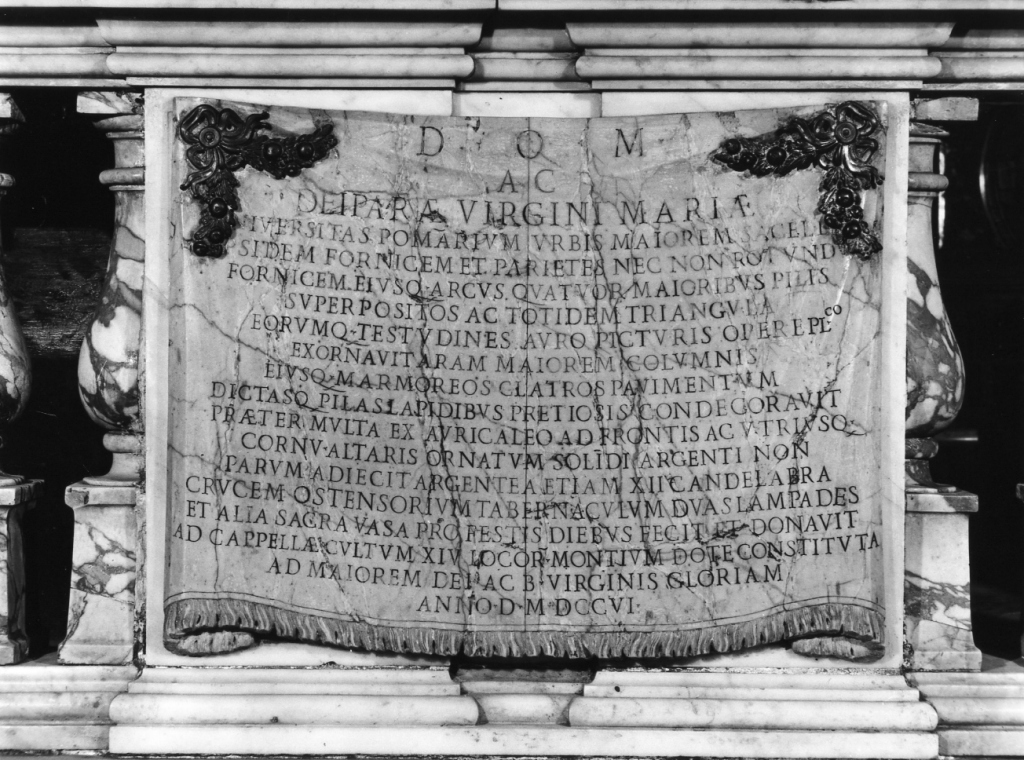 D · O · M
AC
DEIPARÆ VIRGINI MARIÆ
IVERSITAS POMARIVM VRBIS MAIOREM SACELL
SIDEM FORNICEM ET PARIETES NEC NON ROTVND
FORNICEM EIVSQ· ARCVS QVATVOR MAIORIBVS PILIS
SVPERPOSITOS AC TOTIDEM TRIANGVLA
EORVMQ· TESTVDINES AVRO PICTVRIS OPERE PLCO
EXORNAVIT ARAM MAIOREM COLVMNIS
EIVSQ· MARMOREOS CLATROS PAVIMENTVM
DICTASQ· PILAS LAPIDIBVS PRETIOSIS CONDECORAVIT
PRÆTER MVLTA EX AVRICALEO AD FRONTIS AC VTRIVSQ·
CORNV· ALTARIS ORNATVM SOLIDI ARGENTI NON
PARVM ADIECIT ARGENTEA ETIAM XII CANDELABRA
CRVCEM OSTENSORIVM TABERNACVLVM DVAS LAMPADES
ET ALIA SACRA VASA PRO FESTIS DIEBVS FECIT ET DONAVIT
AD CAPPELLÆ CVLTVM XIV LOCOR· MONTIVM DOTE CONSTITVTA
AD MAIOREM DEI AC B· VIRGINIS GLORIAM
ANNO D· MDCCVI·